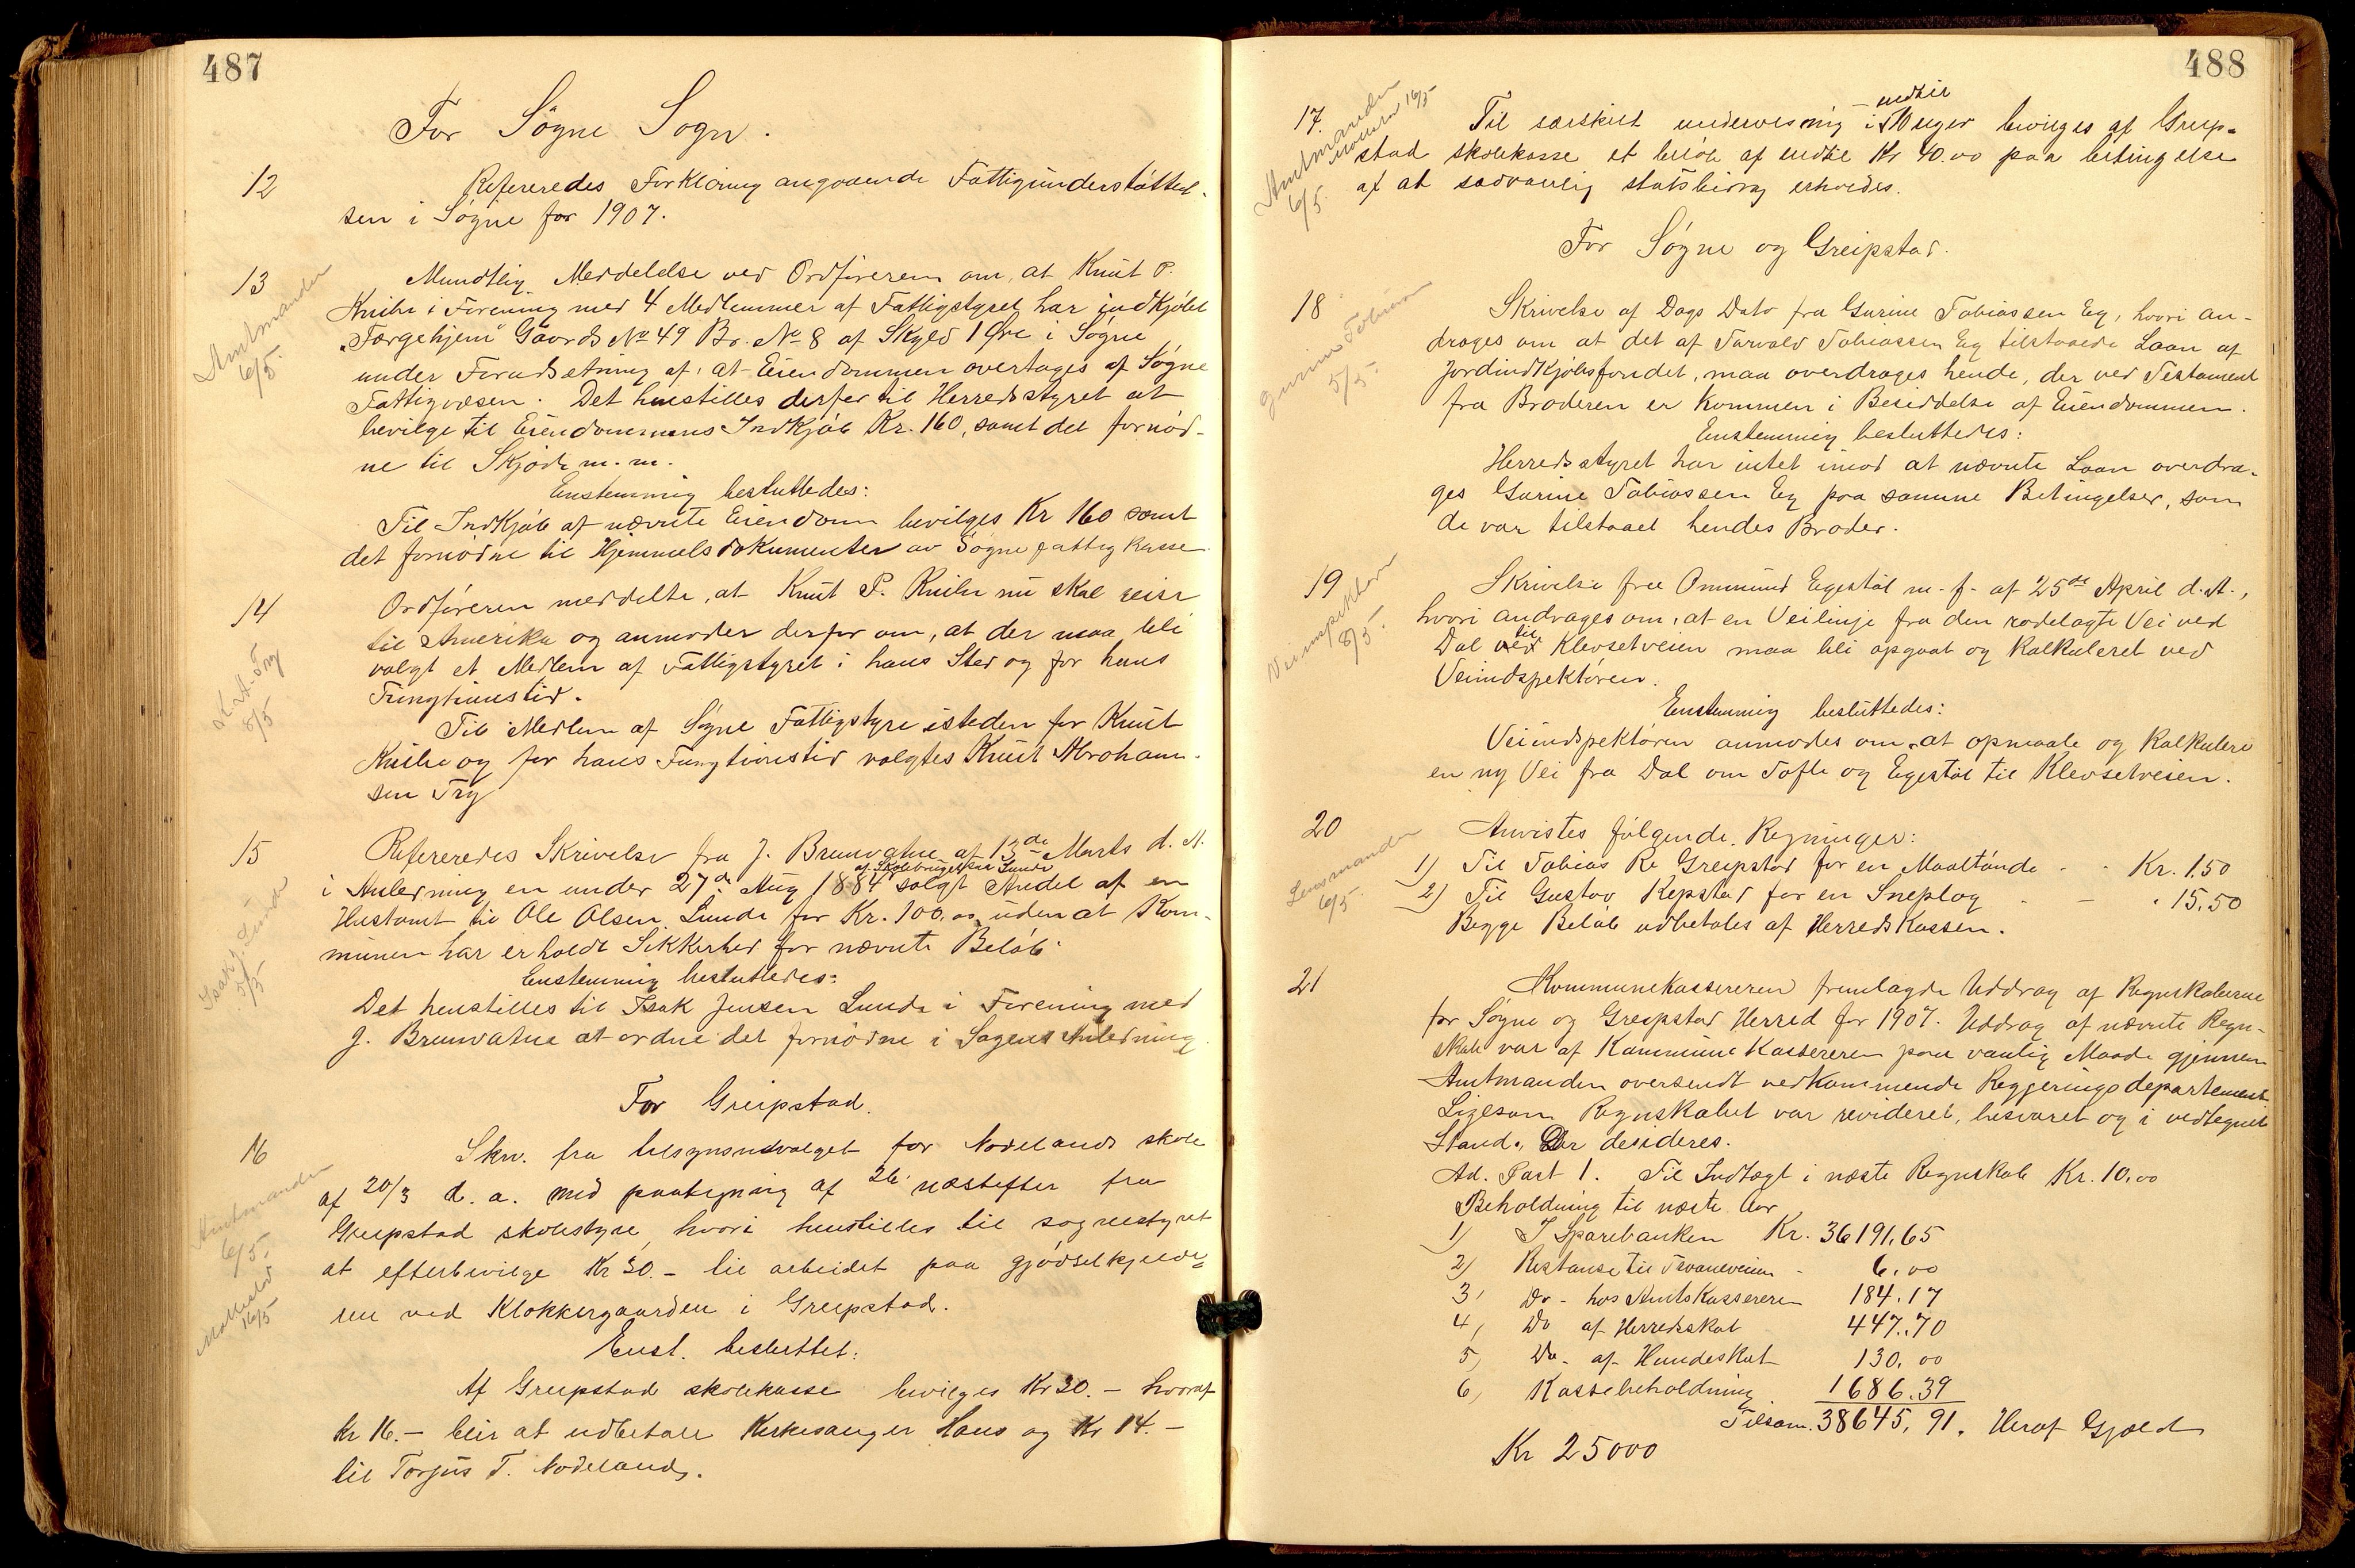 487
For Søgne Sogn.
12
Refereredes Forklaring angaaende Fattigunderstøttel-
sen i Søgne for 1907.
13
Amtmanden
6/5.
Mundtlig Meddelelse ved Ordføreren om, at Knut P.
Knibe i Forening med 4 Medlemmer af Fattigstyret har indkjøbt
"Færgehjem" Gaards No 49 Br. No 8 af Skyld 1 Øre i Søgne
under Forudsætning af, at Eiendommen overtages af Søgne
Fattigvæsen. Det henstilles derfor til Herredsstyret at
bevilge til Eiendommens Indkjøb Kr. 160, samt det fornød-
ne til Skjøde m.m.
Enstemmig besluttedes:
Til Indkjøb af nævnte Eiendom bevilges Kr 160 samt
det fornødne til Hjemmelsdokumenter av Søgne fattigkasse
14
K. A. Try
8/5
Ordføreren meddelte, at Knut P. Knibe nu skal reise
til Amerika og anmoder derfor om, at der maa bli
valgt et Medlem af Fattigstyret i hans Sted og for hans
Fungtionstid.
Til Medlem af Søgne Fattigstyre isteden for Knut
Knibe og for hans Fungtionstid valgtes Knut Abraham-
sen Try
15
Isak J. Lunde
5/5
Refereredes Skrivelse fra J. Brunvatne af 13de Marts d. A.
af Skolebruget paa Lunde
i Anledning en under 27de Aug 1884 solgt Andel af en
Hustomt til Ole Olsen Lunde for Kr. 100.00 uden at Kom-
munen har erholdt Sikkerhed for nævnte Beløb.
Enstemmig besluttedes:
Det henstilles til Isak Jensen Lunde i Forening med
J. Brunvatne at ordne det fornødne i Sagens Anledning
For Greipstad.
16
Amtmanden
6/5.
16/5
Skriv. fra tilsynsudvalget for Nodelands skole
af 20/3 d. a. med paategning af 26 næstefter fra
Greipstad skolestyre, hvori henstilles til sognestyret
at efterbevilge Kr 30.- til arbeidet paa gjødselkjelde-
ren ved Klokkergaarden i Greipstad.
Enst. besluttet:
Af Greipstad skolekasse bevilges Kr 30.- hvoraf
Kr 16.- blir at udbetale Kirkesanger Haus og Kr 14.-
til Torjus T. Nodeland.
488
17.
Amtmanden
6/5.
16/5
Til særskilt undervisning i indtil
10 uger bevilges af Greip-
stad skolekasse et beløb af indtil Kr 40.00 paa betingelse
af at sedvanlig statsbidrag erholdes.
For Søgne og Greipstad.
18
Gurine Tobiasen
5/5.
Skrivelse af Dags Dato fra Gurine Tobiassen Eg, hvori an-
drages om at det af Tarvald Tobiassen Eg tilstaaede Laan af
Jordindkjøbsfondet, maa overdrages hende, der ved Testament
fra Broderen er kommen i Besiddelse af Eiendommen.
Enstemmig besluttedes:
Herredsstyret har intet imod at nævnte Laan overdra-
ges Gurine Tobiassen Eg paa samme Betingelser, som
de var tilstaaet hendes Broder.
19
Veiinspektøren
8/5.
Skrivelse fra Ommund Egestøl m. fl. af 25de April d. A.,
hvori andrages om, at en Veilinje fra den rodelagte Vei ved
Dal til Klevsetveien maa bli opgaat og kalkuleret ved
Veiindspektøren.
Enstemmig besluttedes:
Veiindspektøren anmodes om at opmaale og kalkulere
en ny Vei fra Dal om Tofte og Egestøl til Klevsetveien.
20
Lensmanden
6/5.
Anvistes følgende Regninger:
1) Til Tobias Re Greipstad for en Maaltønde - - Kr. 1.50
2) Til Gustav Repstad for en Sneplog - - " 15.50
Begge Beløb udbetales af Herredskassen.
21
Kommunekassereren fremlagde Uddrag af Regnskaberne
for Søgne og Greipstad Herred for 1907. Uddrag af nævnte Regn-
skab var af Kommunekassereren paa vanlig Maade gjennem
Amtmanden oversendt vedkommende Regjeringsdepartement
Ligesom Regnskabet var revideret, besvaret og i vedtegnet
Stand. Der desideres.
Ad. Post 1. Til Indtægt i næste Regnskab Kr. 10.00
Beholdning til næste Aar
1) I Sparebanken Kr. 36191.65
2) Restanse til Tvaneveien - 6.00
3, Do - hos Amtskassereren 184.17
4, Do af Herredsskat 447.70
5, Do - af Hundeskat 130.00
6, Kassebeholdning 1686.39
Tilsam. 38645.91. Heraf Gjæld
Kr 25000